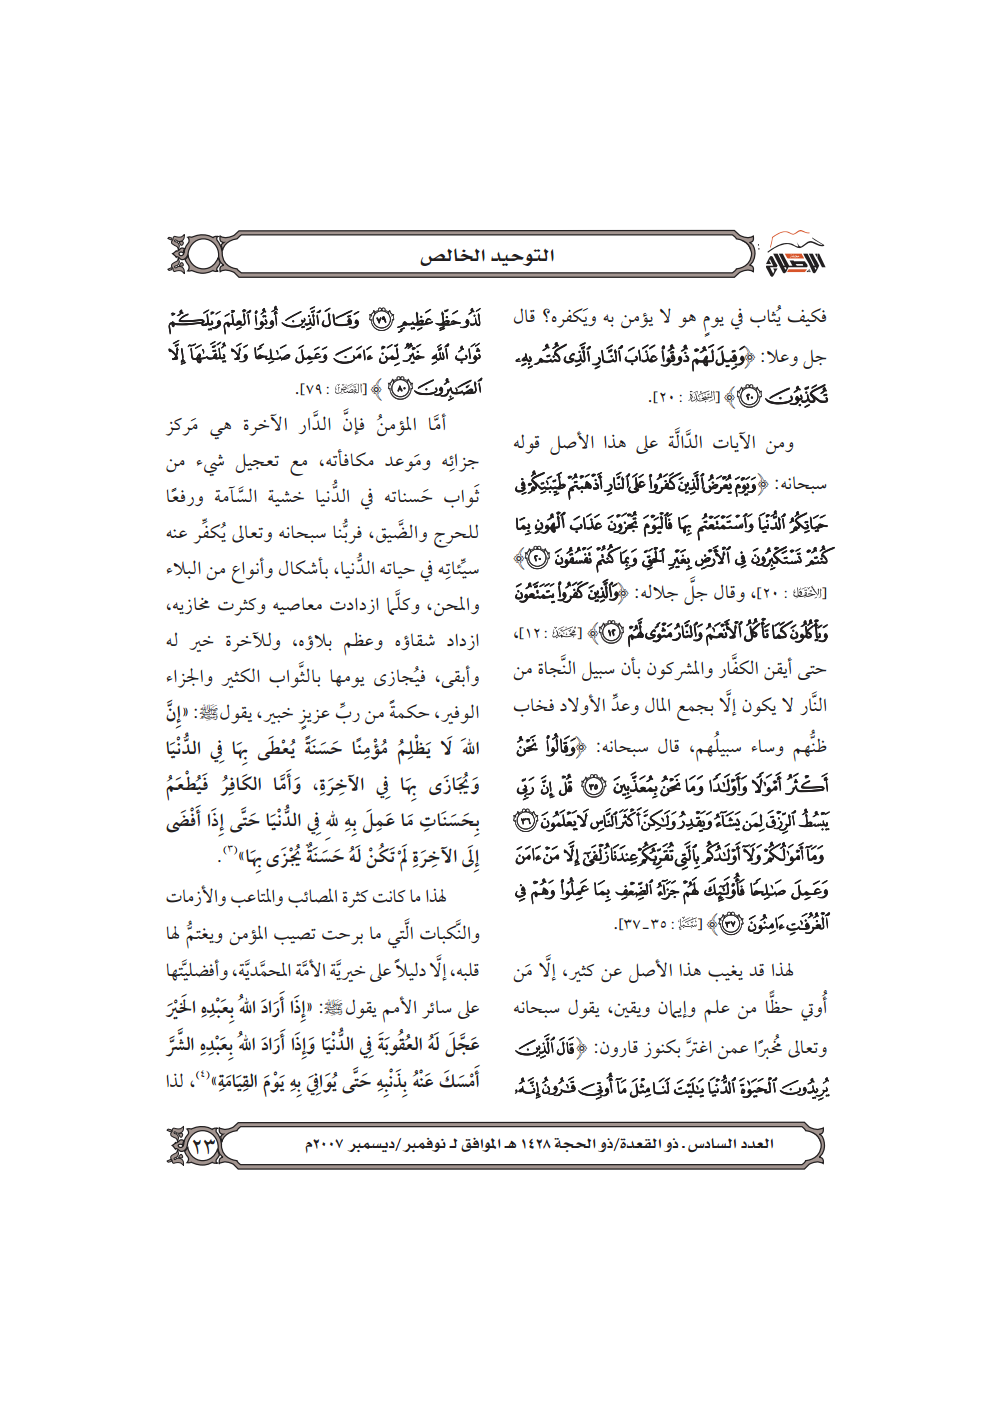 الإصلاح
التوحيد الخالص
فكيف يُثاب في يومٍ هو لا يؤمن به ويَكفره؟ قال
جل وعلا: ﴿وَقِيلَ لَهُمْ ذُوقُوا۟ عَذَابَ ٱلنَّارِ ٱلَّذِى كُنتُم بِهِۦ
تُكَذِّبُونَ ۝٢٠﴾ [السَّجْدَة : ٢٠].
ومن الآيات الدَّالَّة على هذا الأصل قوله
سبحانه: ﴿وَيَوْمَ يُعْرَضُ ٱلَّذِينَ كَفَرُوا۟ عَلَى ٱلنَّارِ أَذْهَبْتُمْ طَيِّبَٰتِكُمْ فِى
حَيَاتِكُمُ ٱلدُّنْيَا وَٱسْتَمْتَعْتُم بِهَا فَٱلْيَوْمَ تُجْزَوْنَ عَذَابَ ٱلْهُونِ بِمَا
كُنتُمْ تَسْتَكْبِرُونَ فِى ٱلْأَرْضِ بِغَيْرِ ٱلْحَقِّ وَبِمَا كُنتُمْ تَفْسُقُونَ ۝٢٠﴾
[الأحقاف : ٢٠]، وقال جلَّ جلاله: ﴿وَٱلَّذِينَ كَفَرُوا۟ يَتَمَتَّعُونَ
وَيَأْكُلُونَ كَمَا تَأْكُلُ ٱلْأَنْعَٰمُ وَٱلنَّارُ مَثْوًى لَّهُمْ ۝١٢﴾ [مُحَمَّد : ١٢]،
حتى أيقن الكفَّار والمشركون بأن سبيل النَّجاة من
النَّار لا يكون إلَّا بجمع المال وعدِّ الأولاد فخاب
ظنُّهم وساء سبيلُهم، قال سبحانه: ﴿وَقَالُوا۟ نَحْنُ
أَكْثَرُ أَمْوَٰلًا وَأَوْلَٰدًا وَمَا نَحْنُ بِمُعَذَّبِينَ ۝٣٥ قُلْ إِنَّ رَبِّى
يَبْسُطُ ٱلرِّزْقَ لِمَن يَشَآءُ وَيَقْدِرُ وَلَٰكِنَّ أَكْثَرَ ٱلنَّاسِ لَا يَعْلَمُونَ ۝٣٦
وَمَآ أَمْوَٰلُكُمْ وَلَآ أَوْلَٰدُكُم بِٱلَّتِى تُقَرِّبُكُمْ عِندَنَا زُلْفَىٰٓ إِلَّا مَنْ ءَامَنَ
وَعَمِلَ صَٰلِحًا فَأُو۟لَٰٓئِكَ لَهُمْ جَزَآءُ ٱلضِّعْفِ بِمَا عَمِلُوا۟ وَهُمْ فِى
ٱلْغُرُفَٰتِ ءَامِنُونَ ۝٣٧﴾ [سَبَإ : ٣٥ ـ ٣٧].
لهذا قد يغيب هذا الأصل عن كثير، إلَّا مَن
أُوتي حظًّا من علم وإيمان ويقين، يقول سبحانه
وتعالى مُخبرًا عمن اغترَّ بكنوز قارون: ﴿قَالَ ٱلَّذِينَ
يُرِيدُونَ ٱلْحَيَوٰةَ ٱلدُّنْيَا يَٰلَيْتَ لَنَا مِثْلَ مَآ أُوتِىَ قَٰرُونُ إِنَّهُۥ
لَذُو حَظٍّ عَظِيمٍ ۝٧٩ وَقَالَ ٱلَّذِينَ أُوتُوا۟ ٱلْعِلْمَ وَيْلَكُمْ
ثَوَابُ ٱللَّهِ خَيْرٌ لِّمَنْ ءَامَنَ وَعَمِلَ صَٰلِحًا وَلَا يُلَقَّىٰهَآ إِلَّا
ٱلصَّٰبِرُونَ ۝٨٠﴾ [القَصَص : ٧٩].
أمَّا المؤمنُ فإنَّ الدَّار الآخرة هي مَركز
جزائِه ومَوعد مكافأته، مع تعجيل شيء من
ثَواب حَسناته في الدُّنيا خشية السَّآمة ورفعًا
للحرج والضَّيق، فربُّنا سبحانه وتعالى يُكفِّر عنه
سيِّئاتِه في حياته الدُّنيا، بأشكال وأنواع من البلاء
والمحن، وكلَّما ازدادت معاصيه وكثرت مخازيه،
ازداد شقاؤه وعظم بلاؤه، وللآخرة خير له
وأبقى، فيُجازى يومها بالثَّواب الكثير والجزاء
الوفير، حكمةً من ربِّ عزيزٍ خبير، يقول ﷺ: «إِنَّ
اللهَ لَا يَظْلِمُ مُؤْمِنًا حَسَنَةً يُعْطَى بِهَا فِي الدُّنْيَا
وَيُجَازَى بِهَا فِي الآخِرَةِ، وَأَمَّا الكَافِرُ فَيُطْعَمُ
بِحَسَنَاتِ مَا عَمِلَ بِهِ للهِ فِي الدُّنْيَا حَتَّى إِذَا أَفْضَى
إِلَى الآخِرَةِ لَمْ تَكُنْ لَهُ حَسَنَةٌ يُجْزَى بِهَا»(٣).
لهذا ما كانت كثرة المصائب والمتاعب والأزمات
والنَّكبات الَّتي ما برحت تصيب المؤمن ويغتمُّ لها
قلبه، إلَّا دليلاً على خيريَّة الأمَّة المحمَّديَّة، وأفضليَّتها
على سائر الأمم يقول ﷺ: «إِذَا أَرَادَ اللهُ بِعَبْدِهِ الخَيْرَ
عَجَّلَ لَهُ العُقُوبَةَ فِي الدُّنْيَا وَإِذَا أَرَادَ اللهُ بِعَبْدِهِ الشَّرَّ
أَمْسَكَ عَنْهُ بِذَنْبِهِ حَتَّى يُوَافِيَ بِهِ يَوْمَ القِيَامَةِ»(٤)، لذا
العدد السادس ـ ذو القعدة/ذو الحجة ١٤٢٨ هـ الموافق لـ نوفمبر/ديسمبر ٢٠٠٧م
٢٣